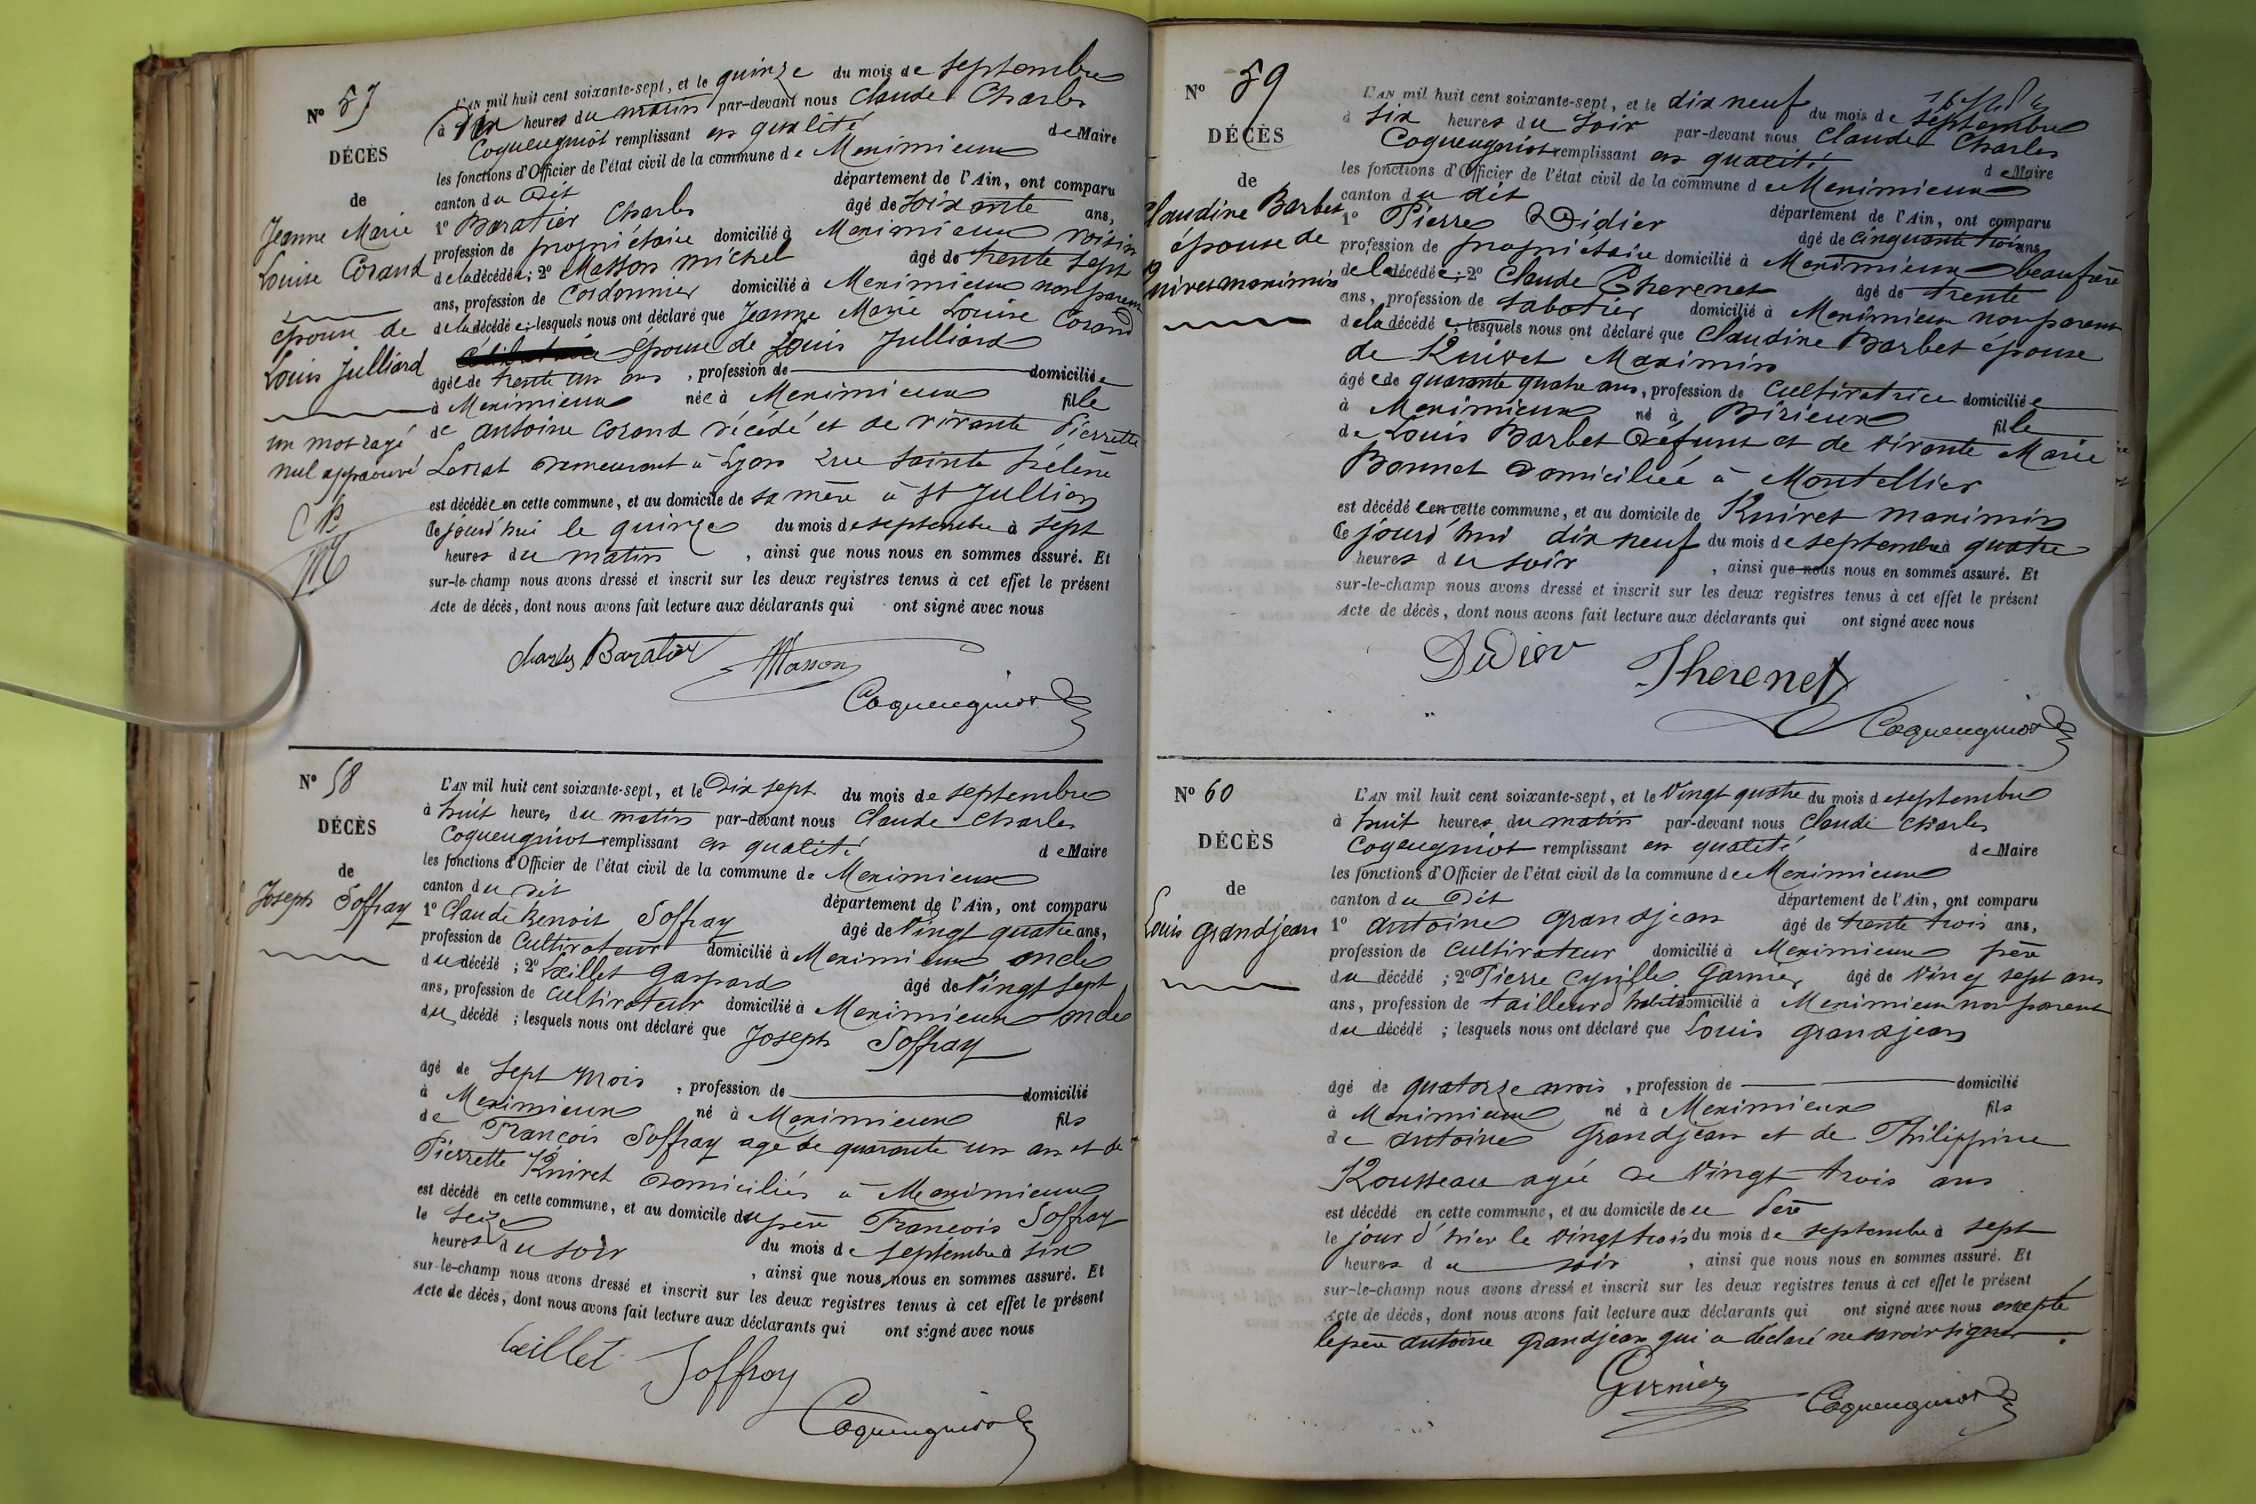 N° 57
DÉCÈS
de
Jeanne Marie
Louise Corand
épouse de
Louis Julliard
un mot rayé
nul approuvé
L'AN mil huit cent soixante-sept, et le quinze du mois de septembre
à dix heures du matin par-devant nous Claude Charles
Coqueugniot remplissant en qualité de Maire
les fonctions d'Officier de l'état civil de la commune de Meximieux
canton du dit département de l'Ain, ont comparu
1° Baratier Charles âgé de soixante ans,
profession de propriétaire domicilié à Meximieux voisin
de la décédée; 2° Masson michel âgé de trente sept
ans, profession de Cordonnier domicilié à Meximieux non parent
de la décédée; lesquels nous ont déclaré que Jeanne Marie Louise Corand
épouse de Louis Julliard
âgée de trente un ans, profession de domiciliée
à Meximieux née à Meximieux fille
de antoine Corand décédé et de vivante Pierrette
demeurant à Lyon rue Sainte hélène
est décédée en cette commune, et au domicile de sa mère à St Jullien
Ce jourd'hui le quinze du mois de septembre à sept
heures du matin, ainsi que nous nous en sommes assuré. Et
sur-le-champ nous avons dressé et inscrit sur les deux registres tenus à cet effet le présent
Acte de décès, dont nous avons fait lecture aux déclarants qui ont signé avec nous
Charles Baratier Masson
Coqueugniot
N° 58
DÉCÈS
de
Joseph Soffray
L'AN mil huit cent soixante-sept, et le Dix sept du mois de septembre
à huit heures du matin par-devant nous Claude Charles
Coqueugniot remplissant en qualité de Maire
les fonctions d'Officier de l'état civil de la commune de Meximieux
canton du dit département de l'Ain, ont comparu
1° Claude Benoit Soffray âgé de Vingt quatre ans,
profession de Cultivateur domicilié à Meximieux oncle
du décédé; 2° Gaspard âgé de Vingt sept
ans, profession de Cultivateur domicilié à Meximieux oncle
du décédé; lesquels nous ont déclaré que Joseph Soffray
âgé de sept mois, profession de domicilié
à Meximieux né à Meximieux fils
de François Soffray agé de quarante un an et de
Pierrette Quivet Domiciliés à Meximieux
est décédé en cette commune, et au domicile du père François Soffray
le seize du mois de septembre à six
heures du soir, ainsi que nous nous en sommes assuré. Et
sur-le-champ nous avons dressé et inscrit sur les deux registres tenus à cet effet le présent
Acte de décès, dont nous avons fait lecture aux déclarants qui ont signé avec nous
Soffray
Coqueugniot
N° 59
DÉCÈS
de
Claudine Barbet
épouse de
Quivet maximin
L'AN mil huit cent soixante-sept, et le dix neuf du mois de septembre
à six heures du soir par-devant nous Claude Charles
Coqueugniot remplissant en qualité de Maire
les fonctions d'Officier de l'état civil de la commune de Meximieux
canton du dit département de l'Ain, ont comparu
1° Pierre Didier âgé de cinquante trois ans,
profession de propriétaire domicilié à Meximieux beaufrère
de la décédée; 2° Claude Therenet âgé de trente
ans, profession de sabotier domicilié à Meximieux non parent
de la décédée lesquels nous ont déclaré que Claudine Barbet épouse
de Quivet Maximin
âgée de quarante quatre ans, profession de Cultivatrice domiciliée
à Meximieux né à Birieux fille
de Louis Barbet Défunt et de vivante Marie
Bonnet Domiciliée à Montellier
est décédée en cette commune, et au domicile de Quivet maximin
Ce jourd'hui dix neuf du mois de septembre à quatre
heures du soir, ainsi que nous nous en sommes assuré. Et
sur-le-champ nous avons dressé et inscrit sur les deux registres tenus à cet effet le présent
Acte de décès, dont nous avons fait lecture aux déclarants qui ont signé avec nous
Didier Therenet
Coqueugniot
N° 60
DÉCÈS
de
Louis grandjean
L'AN mil huit cent soixante-sept, et le Vingt quatre du mois de septembre
à huit heures du matin par-devant nous Claude Charles
Coqeugniot remplissant en qualité de Maire
les fonctions d'Officier de l'état civil de la commune de Meximieux
canton du dit département de l'Ain, ont comparu
1° antoine grandjean âgé de trente trois ans,
profession de cultivateur domicilié à Meximieux père
du décédé; 2° Pierre Cyrille Garnier âgé de Vingt sept ans
ans, profession de tailleur d'habit domicilié à Meximieux non parent
du décédé; lesquels nous ont déclaré que Louis grandjean
âgé de quatorze mois, profession de domicilié
à Meximieux né à Meximieux fils
de antoine Grandjean et de Philippine
Rousseau agée de Vingt trois ans
est décédé en cette commune, et au domicile de du Père
le jour d'hier le vingt trois du mois de septembre à sept
heures du soir, ainsi que nous nous en sommes assuré. Et
sur-le-champ nous avons dressé et inscrit sur les deux registres tenus à cet effet le présent
Acte de décès, dont nous avons fait lecture aux déclarants qui ont signé avec nous excepté
le père antoine grandjean qui a déclaré ne savoir signer.
Garnier Coqueugniot